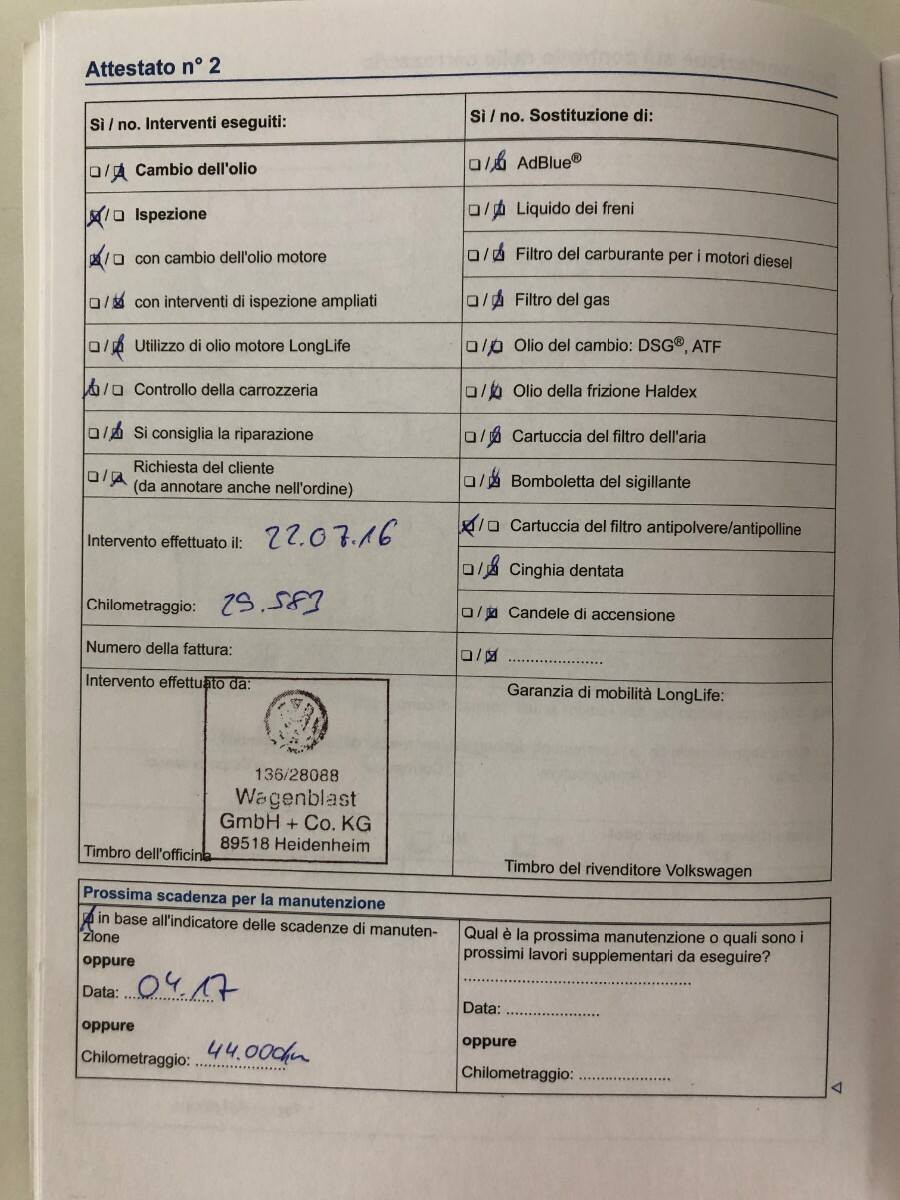 Attestato n° 2
Sì / no. Interventi eseguiti:
❏ / ❏ Cambio dell'olio
❏ / ❏ Ispezione
❏ / ❏ con cambio dell'olio motore
❏ / ❏ con interventi di ispezione ampliati
❏ / ❏ Utilizzo di olio motore LongLife
❏ / ❏ Controllo della carrozzeria
❏ / ❏ Si consiglia la riparazione
❏ / ❏ Richiesta del cliente
(da annotare anche nell'ordine)
Intervento effettuato il: 22.07.16
Chilometraggio: 29.583
Numero della fattura:
Intervento effettuato da:
136/28088
Wagenblast
GmbH + Co. KG
89518 Heidenheim
Timbro dell'officina
Sì / no. Sostituzione di:
❏ / ❏ AdBlue®
❏ / ❏ Liquido dei freni
❏ / ❏ Filtro del carburante per i motori diesel
❏ / ❏ Filtro del gas
❏ / ❏ Olio del cambio: DSG®, ATF
❏ / ❏ Olio della frizione Haldex
❏ / ❏ Cartuccia del filtro dell'aria
❏ / ❏ Bomboletta del sigillante
❏ / ❏ Cartuccia del filtro antipolvere/antipolline
❏ / ❏ Cinghia dentata
❏ / ❏ Candele di accensione
❏ / ❏ ......................
Garanzia di mobilità LongLife:
Timbro del rivenditore Volkswagen
Prossima scadenza per la manutenzione
❏ in base all'indicatore delle scadenze di manuten-
zione
oppure
Data: 04.17
oppure
Chilometraggio: 44.000km
Qual è la prossima manutenzione o quali sono i
prossimi lavori supplementari da eseguire?
......................................................
Data: ......................
oppure
Chilometraggio: ......................